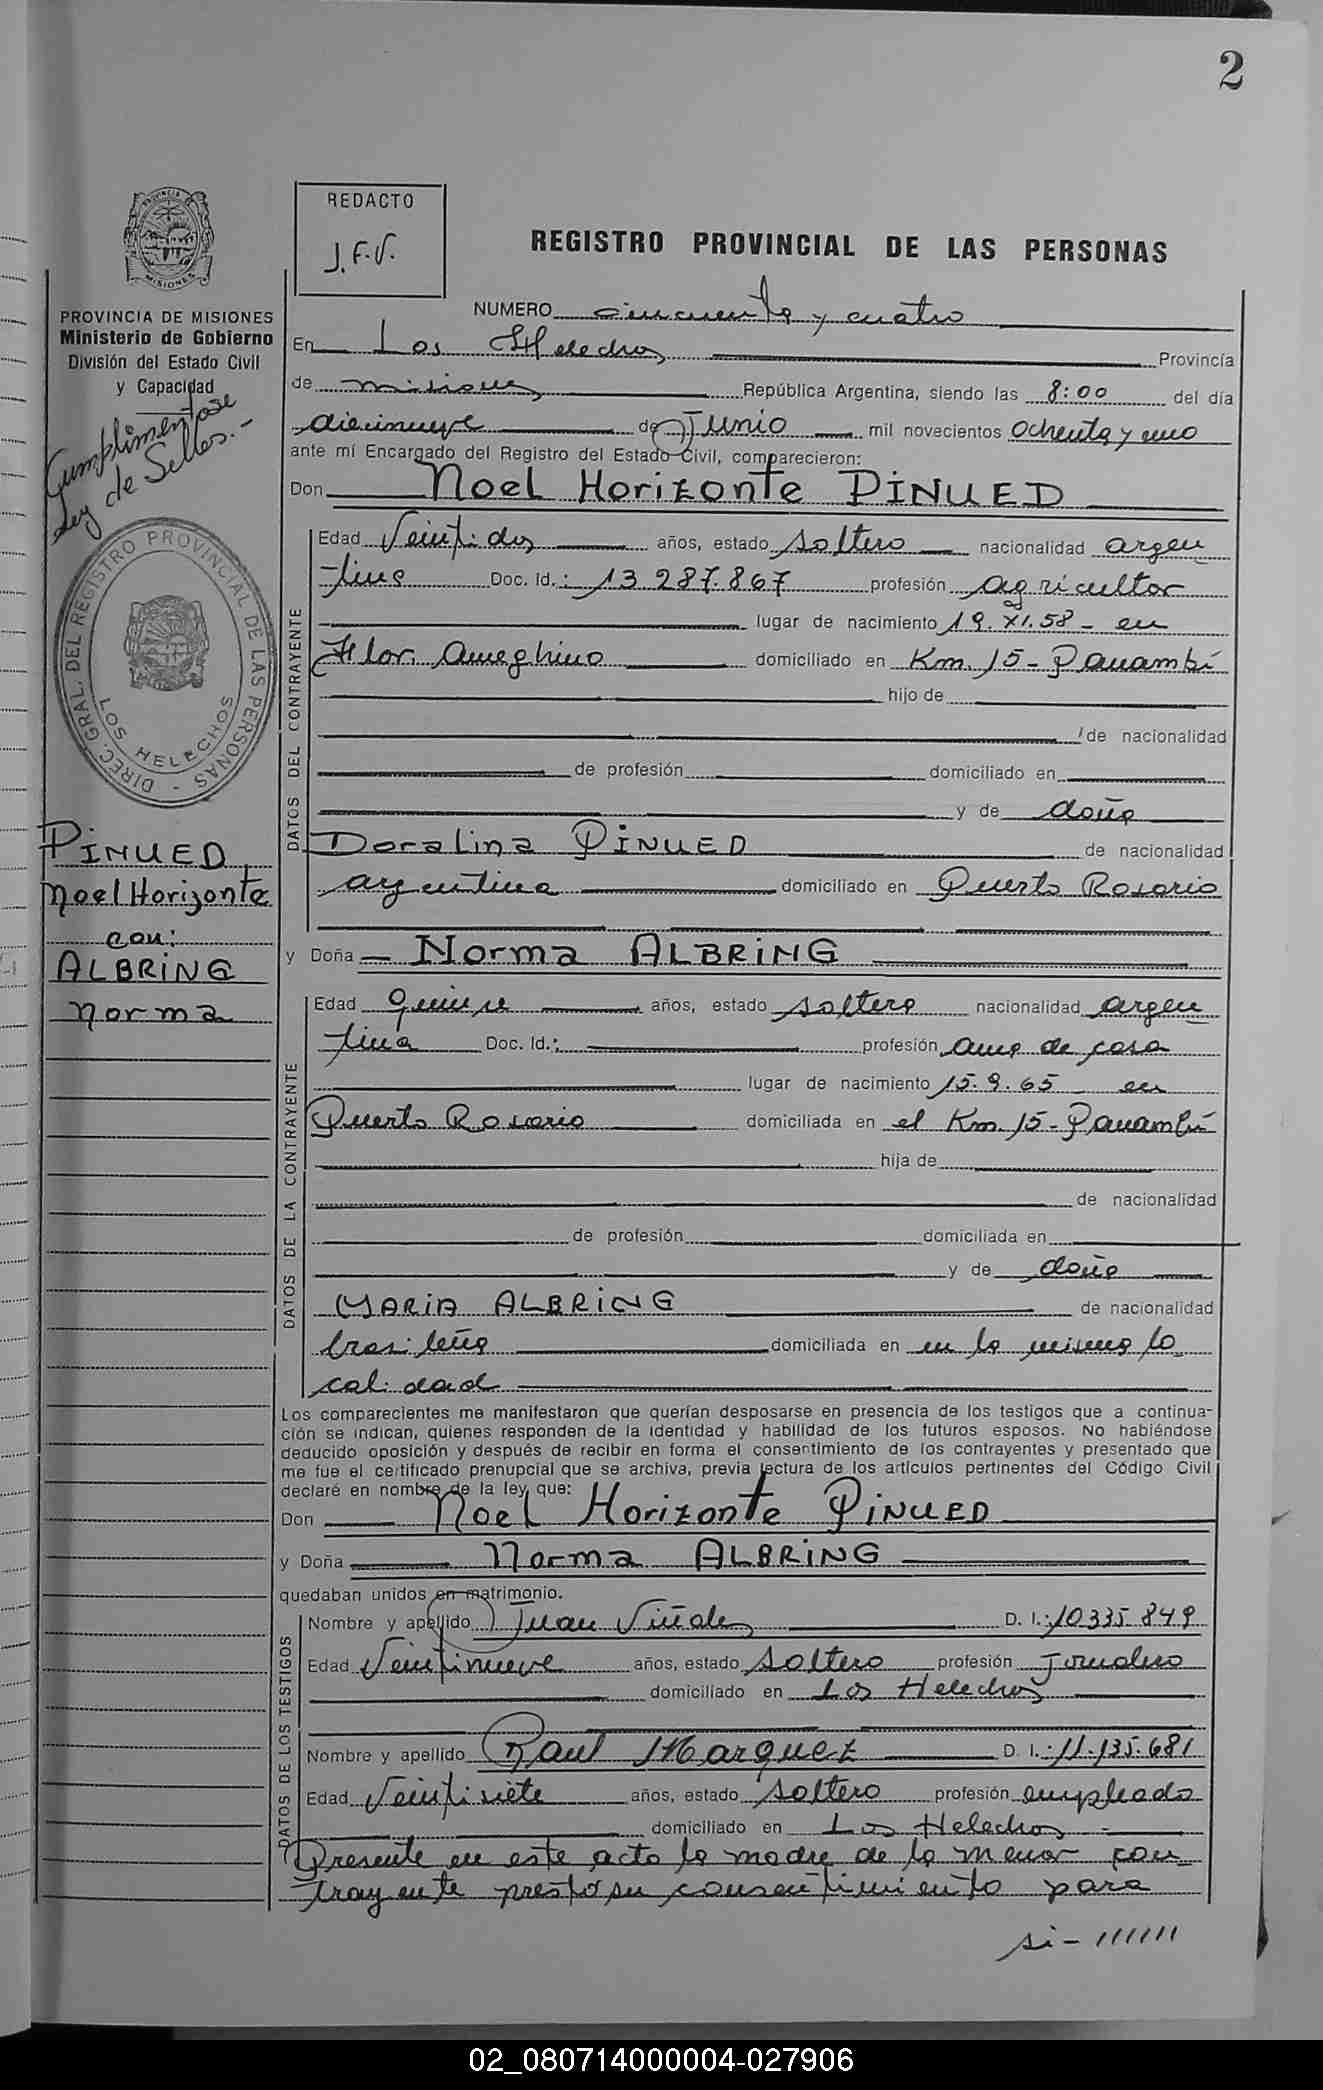 2
PROVINCIA DE MISIONES
Ministerio de Gobierno
División del Estado Civil
y Capacidad
Cumplimentose
Ley de Sellos.-
DIREC. GRAL. DEL REGISTRO PROVINCIAL DE LAS PERSONAS -
LOS HELECHOS
PINUED
Noel Horizonte
con:
ALBRING
Norma
REDACTO
J.F.V.
REGISTRO PROVINCIAL DE LAS PERSONAS
NUMERO cincuenta y cuatro
En Los Helechos Provincia
de misiones República Argentina, siendo las 8:00 del día
diecinueve de Junio mil novecientos ochenta y uno
ante mí Encargado del Registro del Estado Civil, comparecieron:
Don Noel Horizonte PINUED
DATOS DEL CONTRAYENTE
Edad Veintidos años, estado soltero nacionalidad argen
tino Doc. Id.: 13.287.867 profesión agricultor
lugar de nacimiento 19.XI.58- en
Flor. Ameghino domiciliado en Km. 15- Panambí
hijo de
de nacionalidad
de profesión domiciliado en
y de doña
Doralina PINUED de nacionalidad
argentina domiciliado en Puerto Rosario
y Doña Norma ALBRING
DATOS DE LA CONTRAYENTE
Edad Quince años, estado soltera nacionalidad argen
tina Doc. Id.: profesión ama de casa
lugar de nacimiento 15.9.65 en
Puerto Rosario domiciliada en el Km. 15- Panambí
hija de
de nacionalidad
de profesión domiciliada en
y de doña
MARIA ALBRING de nacionalidad
brasileña domiciliada en en la misma lo
calidad
Los comparecientes me manifestaron que querían desposarse en presencia de los testigos que a continua-
ción se indican, quienes responden de la identidad y habilidad de los futuros esposos. No habiéndose
deducido oposición y después de recibir en forma el consentimiento de los contrayentes y presentado que
me fue el certificado prenupcial que se archiva, previa lectura de los artículos pertinentes del Código Civil
declaré en nombre de la ley que:
Don Noel Horizonte PINUED
y Doña Norma ALBRING
quedaban unidos en matrimonio.
DATOS DE LOS TESTIGOS
Nombre y apellido Juan Viñales D. I.: 10.335.849
Edad Veintinueve años, estado soltero profesión Jornalero
domiciliado en Los Helechos
Nombre y apellido Raul Marquez D. I.: 11.135.681
Edad Veintisiete años, estado soltero profesión empleado
domiciliado en Los Helechos
Presente en este acto la madre de la menor con
trayente prestó su consentimiento para
si-//////
02_080714000004-027906